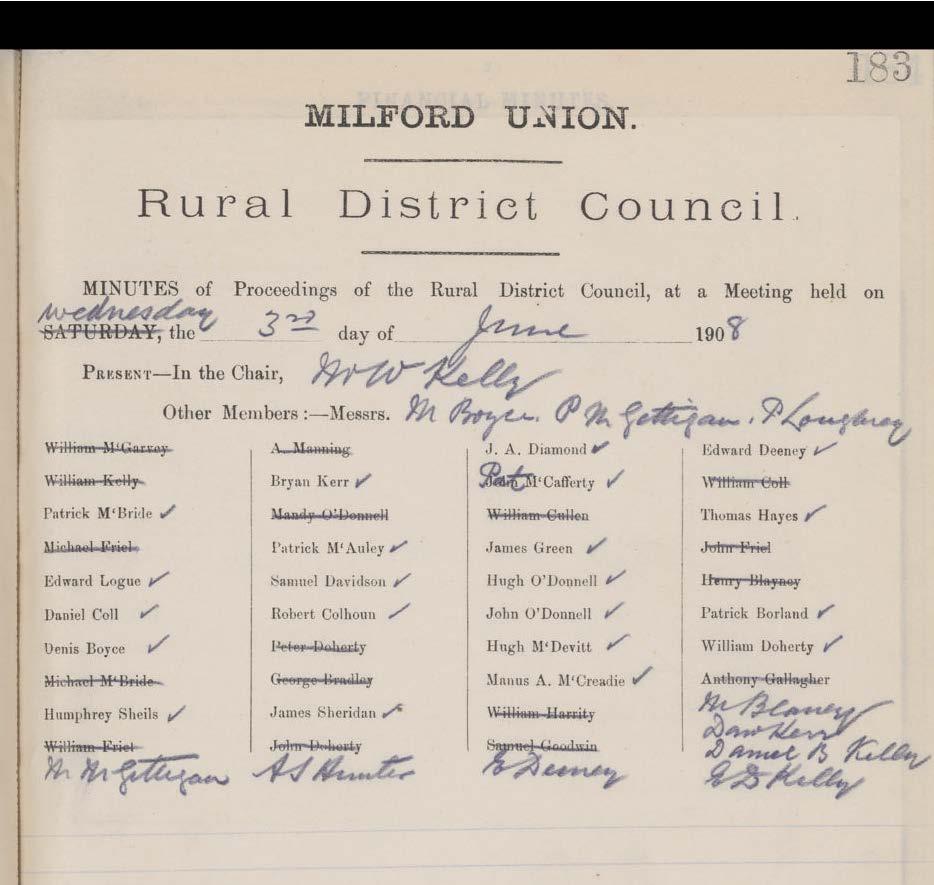 183
MILFORD UNION.
Rural District Council.
MINUTES of Proceedings of the Rural District Council, at a Meeting held on
wednesday
SATURDAY, the 3rd day of June 1908
PRESENT—In the Chair, Mr W Kelly
Other Members :—Messrs. M Boyce. P McGettigan. P Loughrey
William M‘Garvey A. Manning J. A. Diamond ✓ Edward Deeney ✓
William Kelly Bryan Kerr ✓ Pat M‘Cafferty ✓ William Coll
Patrick M‘Bride ✓ Mandy O'Donnell William Cullen Thomas Hayes ✓
Michael Friel Patrick M‘Auley ✓ James Green ✓ John Friel
Edward Logue ✓ Samuel Davidson ✓ Hugh O'Donnell ✓ Henry Blayney
Daniel Coll ✓ Robert Colhoun ✓ John O'Donnell ✓ Patrick Borland ✓
Denis Boyce ✓ Peter Doherty Hugh M‘Devitt ✓ William Doherty ✓
Michael M‘Bride George Bradley Manus A. M‘Creadie ✓ Anthony Gallagher
Humphrey Sheils ✓ James Sheridan ✓ William Harrity M Blaney
William Friel John Doherty Samuel Goodwin Dan Kerr
M McGettigan A S Hunter E Deeney Daniel B Kelly
E D Kelly